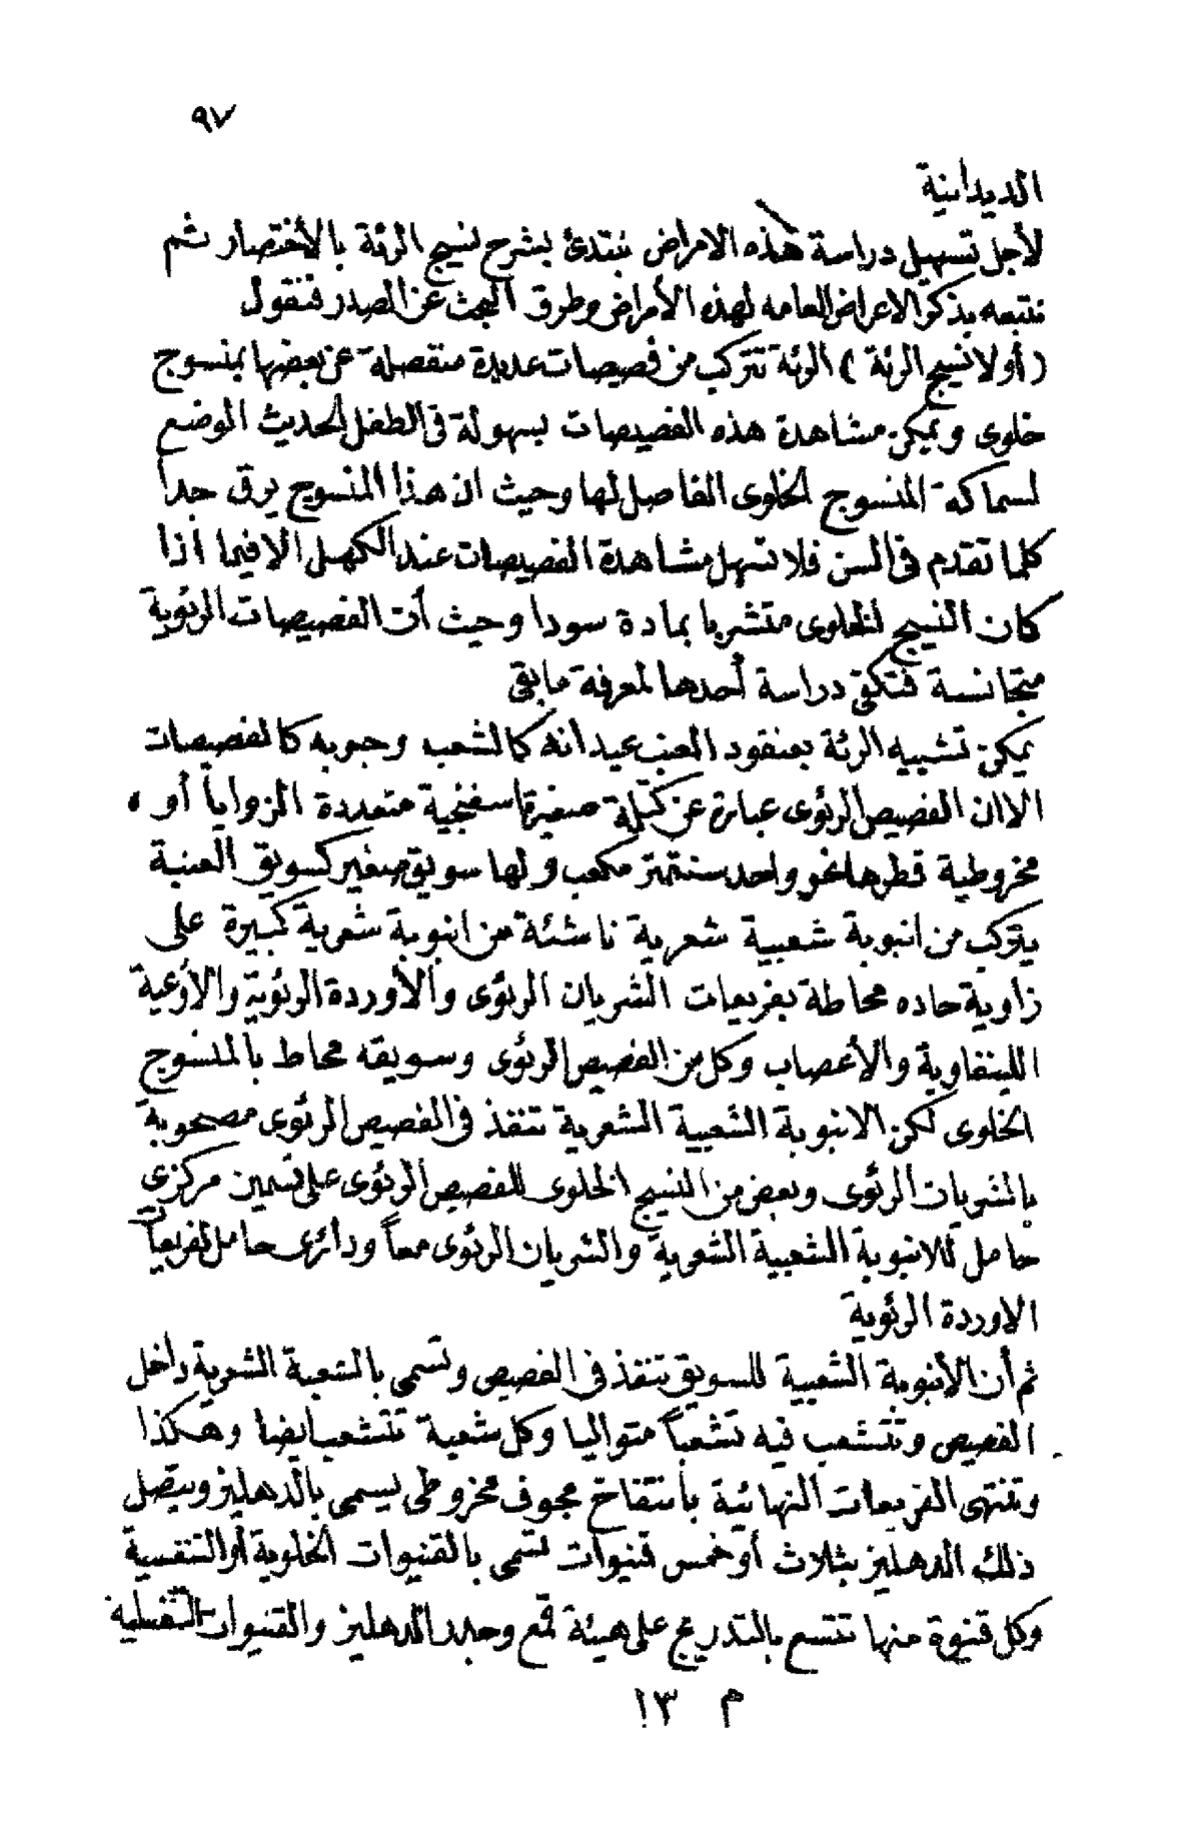 ٩٧
الديدانية
لأجل تسهيل دراسة هذه الامراض نبتدئ بشرح نسيج الرئة بالأختصار ثم
نتبعه بذكر الاعراض العامه لهذه الأمراض وطرق البحث عن الصدر فنقول
(أولا نسيج الرئة) الرئة تتركب من فصيصات عديدة منفصلة عن بعضها بمنسوج
خلوى ويمكن مشاهدة هذه الفصيصات بسهولة فى الطفل الحديث الوضع
لسماكة المنسوج الخلوى الفاصل لها وحيث ان هذا المنسوج يرق جداً
كلما تقدم فى السن فلا تسهل مشاهدة الفصيصات عند الكهل الا فيما اذا
كان النسيج الخلوى متشربا بمادة سودا وحيث أن الفصيصات الرئوية
متجانسة فتكفى دراسة أحدها لمعرفة ما بقى
يمكن تشبيه الرئة بعنقود العنب عيدانه كالشعب وحبوبه كالفصيصات
الاان الفصيص الرئوى عبارة عن كتلة صغيرة اسفنجية متعددة الزوايا أو
مخروطية قطرها نحو واحد سنتمتر مكعب ولها سويق صغير كسويق العنبة
يتركب من انبوبة شعبية شعرية ناشئة من انبوبة شعرية كبيرة على
زاوية حاده محاطة بفريعات الشريان الرئوى والأوردة الرئوية والأوعية
اللينفاوية والأعصاب وكل من الفصيص الرئوى وسويقه محاط بالمنسوج
الخلوى لكن الانبوبة الشعبية الشعرية تنفذ فى الفصيص الرئوى مصحوبة
بالشريات الرئوى وبعض من النسيج الخلوى للفصيص الرئوى على قسمين مركزى
حامل للانبوبة الشعبية الشعرية والشريان الرئوى معاً ودائرى حامل لفريعات
الاوردة الرئوية
ثم أن الأنبوبة الشعبية للسويق تنفذ فى الفصيص وتسمى بالشعبة الشعرية داخل
الفصيص وتتشعب فيه تشعباً متواليا وكل شعبة تتشعب ايضا وهكذا
وتنتهى الفريعات النهائية بأنتفاخ مجوف مخروطى يسمى بالدهليز ويتصل
ذلك الدهليز بثلاث أو خمس قنيوات تسمى بالقنيوات الخلوية أو التنفسية
وكل قنيوة منها تتسع بالتدريج على هيئة قمع وجدر الدهليز والقنيوات
م ١٣